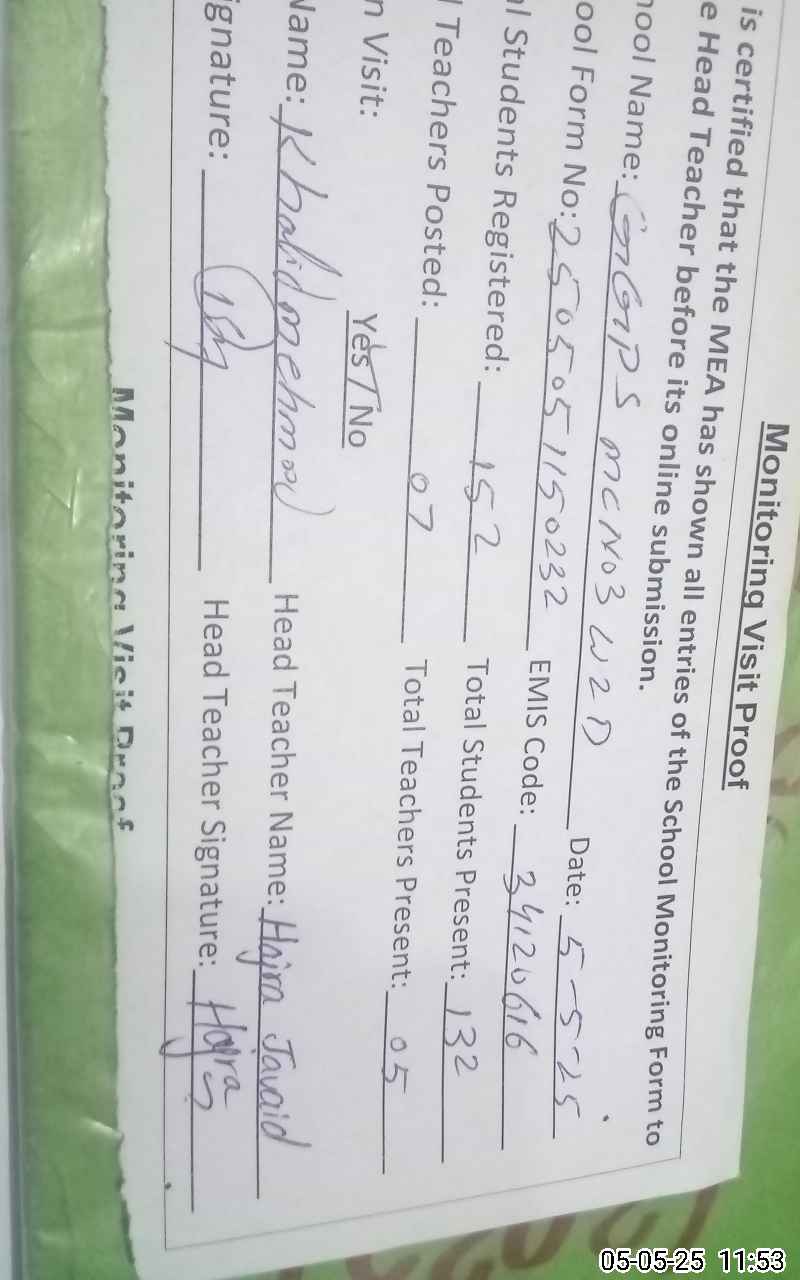 Monitoring Visit Proof
is certified that the MEA has shown all entries of the School Monitoring Form to
e Head Teacher before its online submission.
ool Name: GGPS MC NO3 WZD Date: 5-5-25
ool Form No: 2505051150232 EMIS Code: 34120616
l Students Registered: 152 Total Students Present: 132
l Teachers Posted: 07 Total Teachers Present: 05
n Visit: Yes / No
Name: Khalid mehmood Head Teacher Name: Hajra Javaid
ignature: Head Teacher Signature: Hajra
Monitoring Visit Proof
05-05-25 11:53